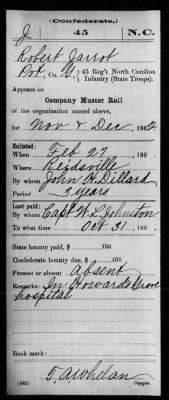 (Confederate.)
J 45 N.C.
Robert Jarrot
Pvt, Co. G, 45 Reg't North Carolina
Infantry (State Troops).
Appears on
Company Muster Roll
of the organization named above,
for Nov & Dec, 1862.
Enlisted:
When Feb 27, 186 .
Where Reidsville
By whom John H. Dillard
Period 3 years
Last paid:
By whom Capt W. L. Johnston
To what time Oct 31, 186 .
State bounty paid, $ 100
Confederate bounty due, $ 100
Present or absent Absent
Remarks: In Howards Grove
hospital
Book mark:
T. A. Whelan
(642) Copyist.